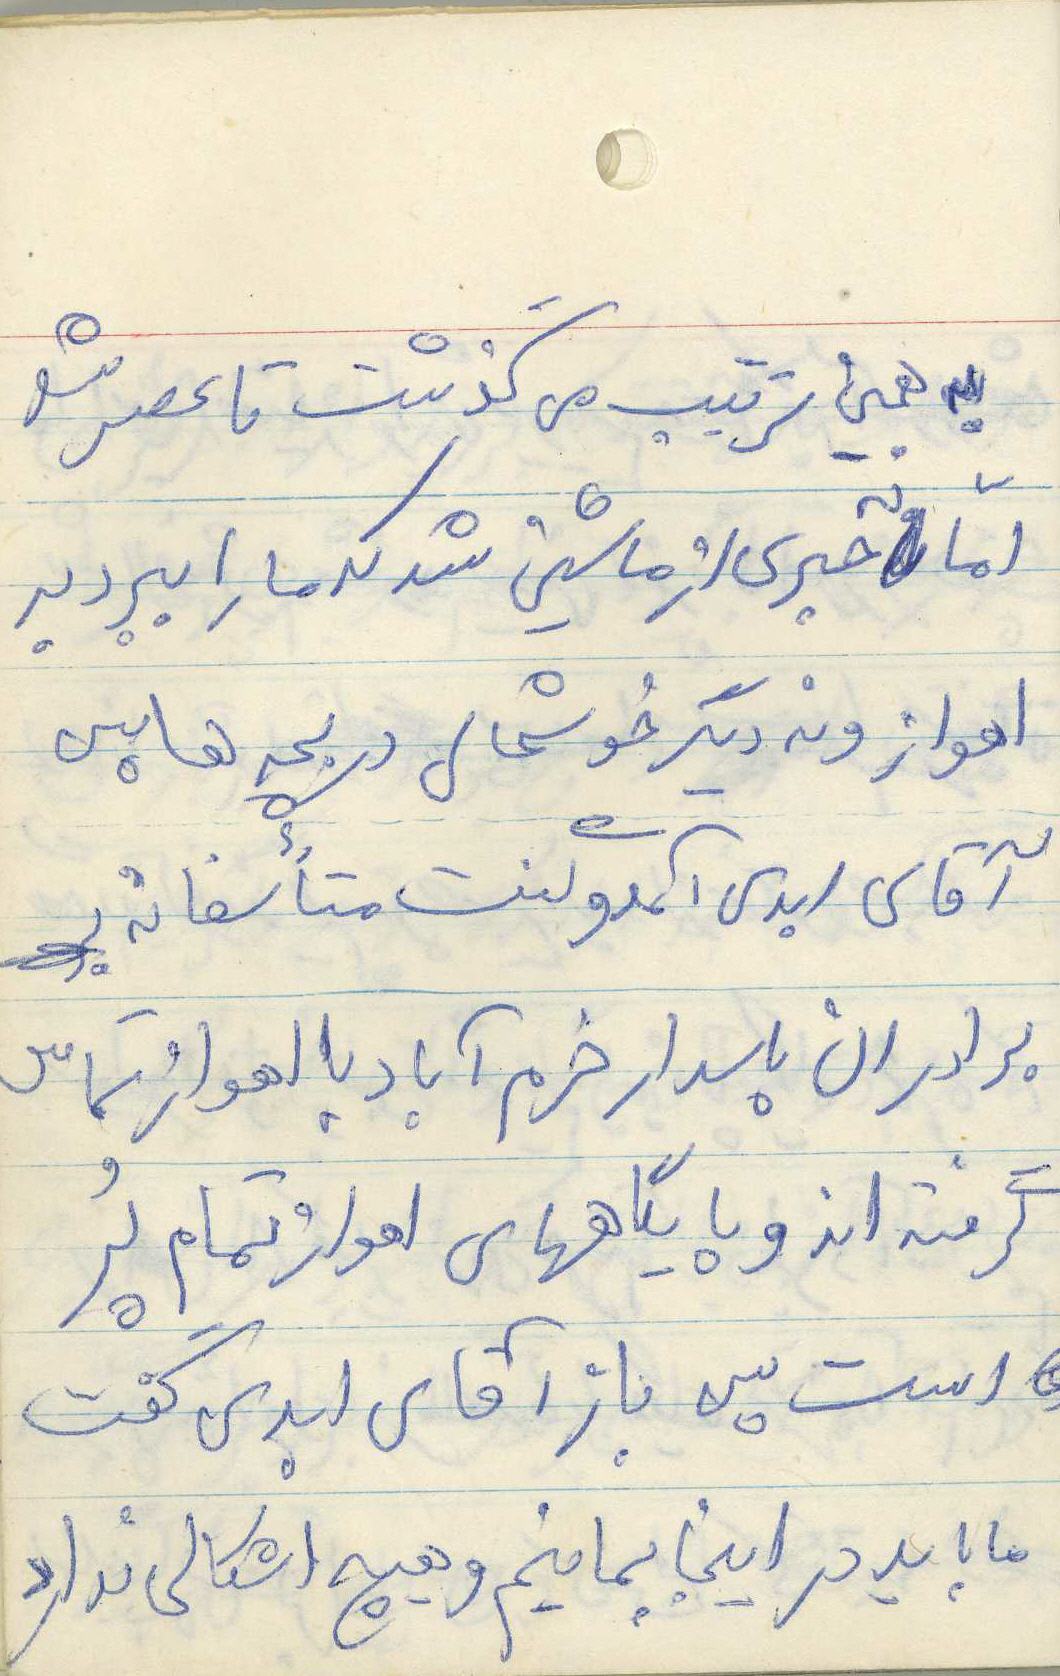 به همین ترتیب می گذشت تا عصر شد
امّا نه خبری از ماشین شد که ما را ببرد به
اهواز و نه دیگر خوشحالی در بچه ها پس
آقای ابدی آمد و گفت متأسفانه
برادران پاسدار خرم آباد با اهواز تماس
گرفته اند و پایگاههای اهواز تمام پُر
است پس باز آقای ابدی گفت
ما باید در اینجا بمانیم و هیچ اشکالی ندارد